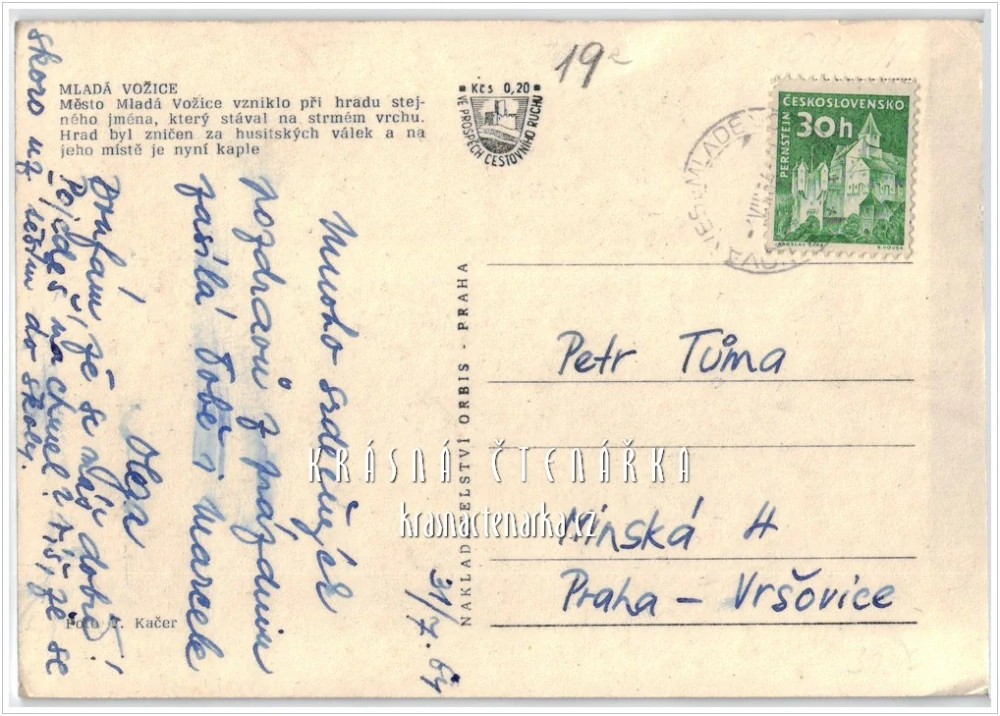 MLADÁ VOŽICE
Město Mladá Vožice vzniklo při hradu stej-
ného jména, který stával na strmém vrchu.
Hrad byl zničen za husitských válek a na
jeho místě je nyní kaple
Kčs 0,20
VE PROSPĚCH CESTOVNÍHO RUCHU
19
ČESKOSLOVENSKO
30h
PERNŠTEJN
31/7. 64
Mnoho srdečných
pozdravů z prázdnin
zasílá Tobě i Mareek
Olga
Doufám, že se máš dobře!
Pojedeš na chmel? Těš, že se
skoro už těším do školy.
NAKLADATELSTVÍ ORBIS - PRAHA
Petr Tůma
Minská 4
Praha - Vršovice
Foto J. Kačer
KRÁSNÁ ČTENÁŘKA
krasnactenarka.cz